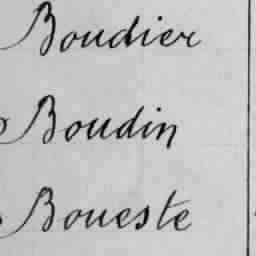 Boudier
Boudin
Boueste